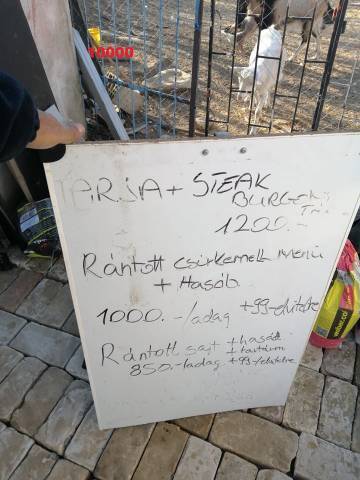 10000
TARJA + STEAK
BURGER
1200.-
Rántott csirkemell menü
+ Hasáb
1000.-/adag +99-elvitelre
Rántott sajt + hasáb
+ tartárm
850.-/adag +99-/elvitelre